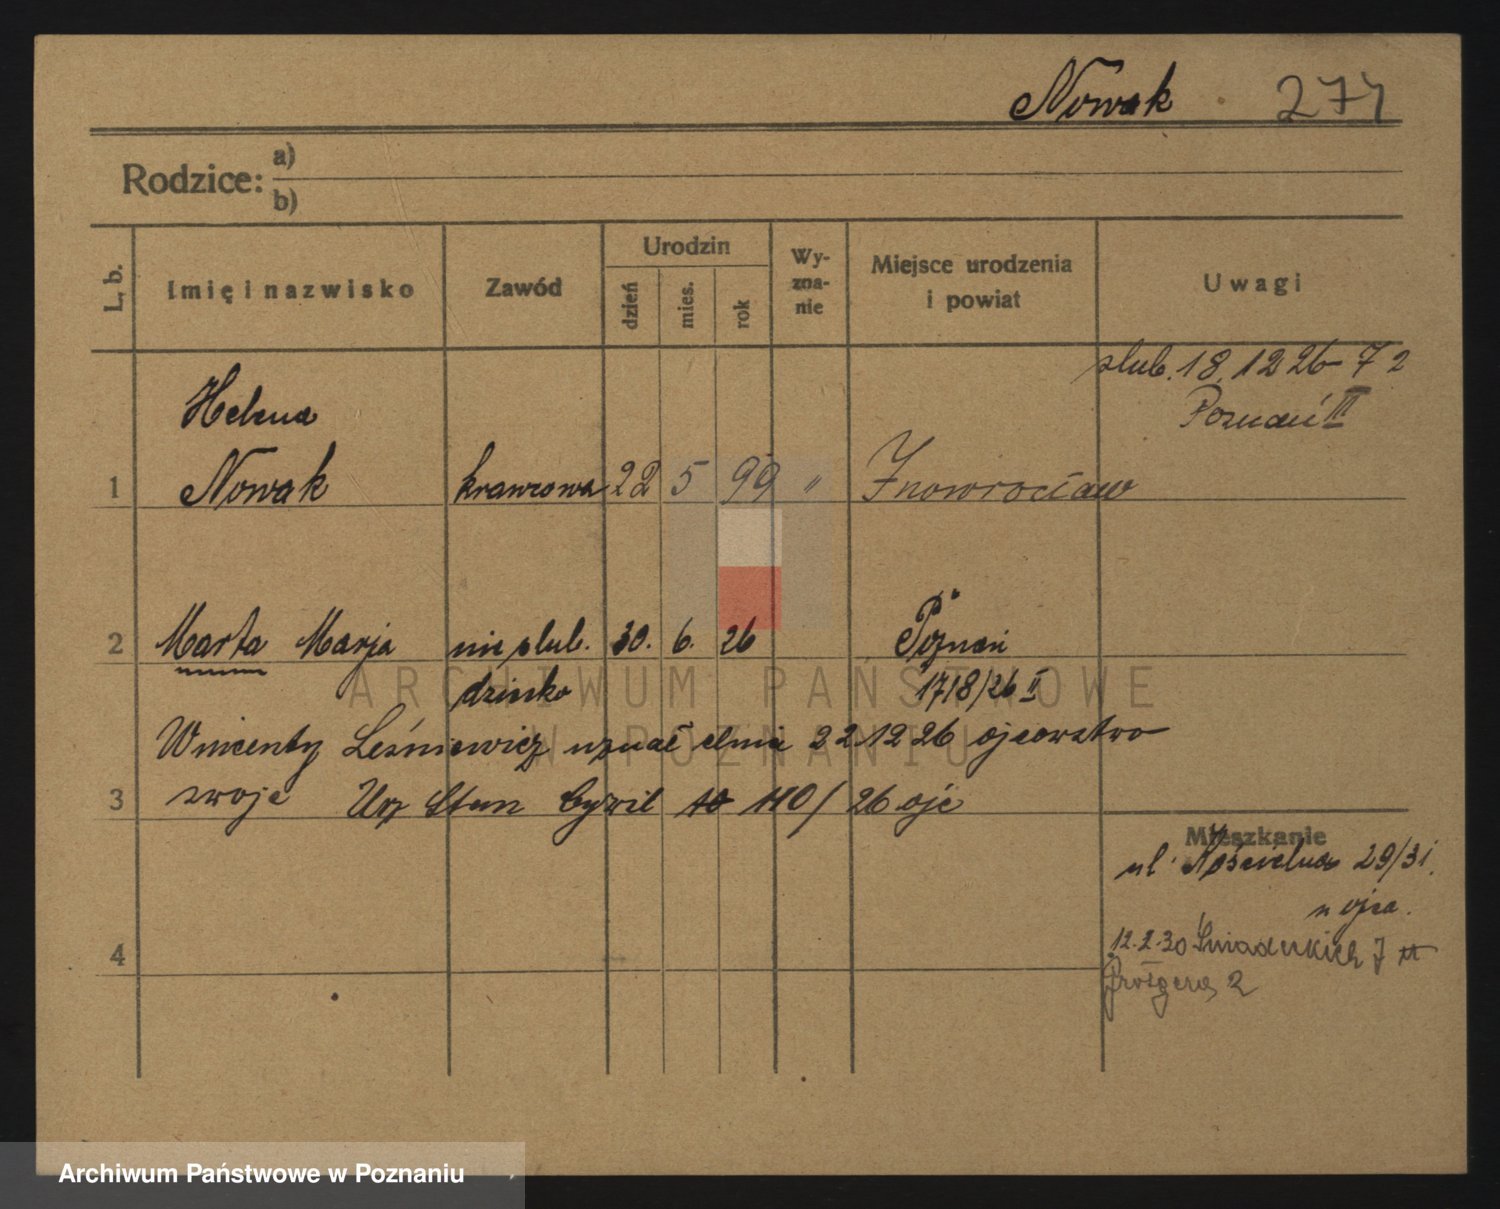 Nowak 277
Rodzice: a)
b)
L. b. Imię i nazwisko Zawód Urodzin dzień mies. rok Wyznanie Miejsce urodzenia i powiat Uwagi
ślub. 18.12 26
Poznań III
Helena
1 Nowak krawcowa 22 5 99 " Inowrocław
2 Marta Marja nieślub. 30. 6. 26 Poznań
dziecko 1718/26 II
Wincenty Leśniewicz uznał dnia 22 12 26 ojcowstwo
3 swoje Urz Stan Cywil 110/26
Mieszkanie
ul. 29/31.
u ojca.
4 12.2.30 Śniadeckich 7
2
ARCHIWUM PAŃSTWOWE
W POZNANIU
Archiwum Państwowe w Poznaniu